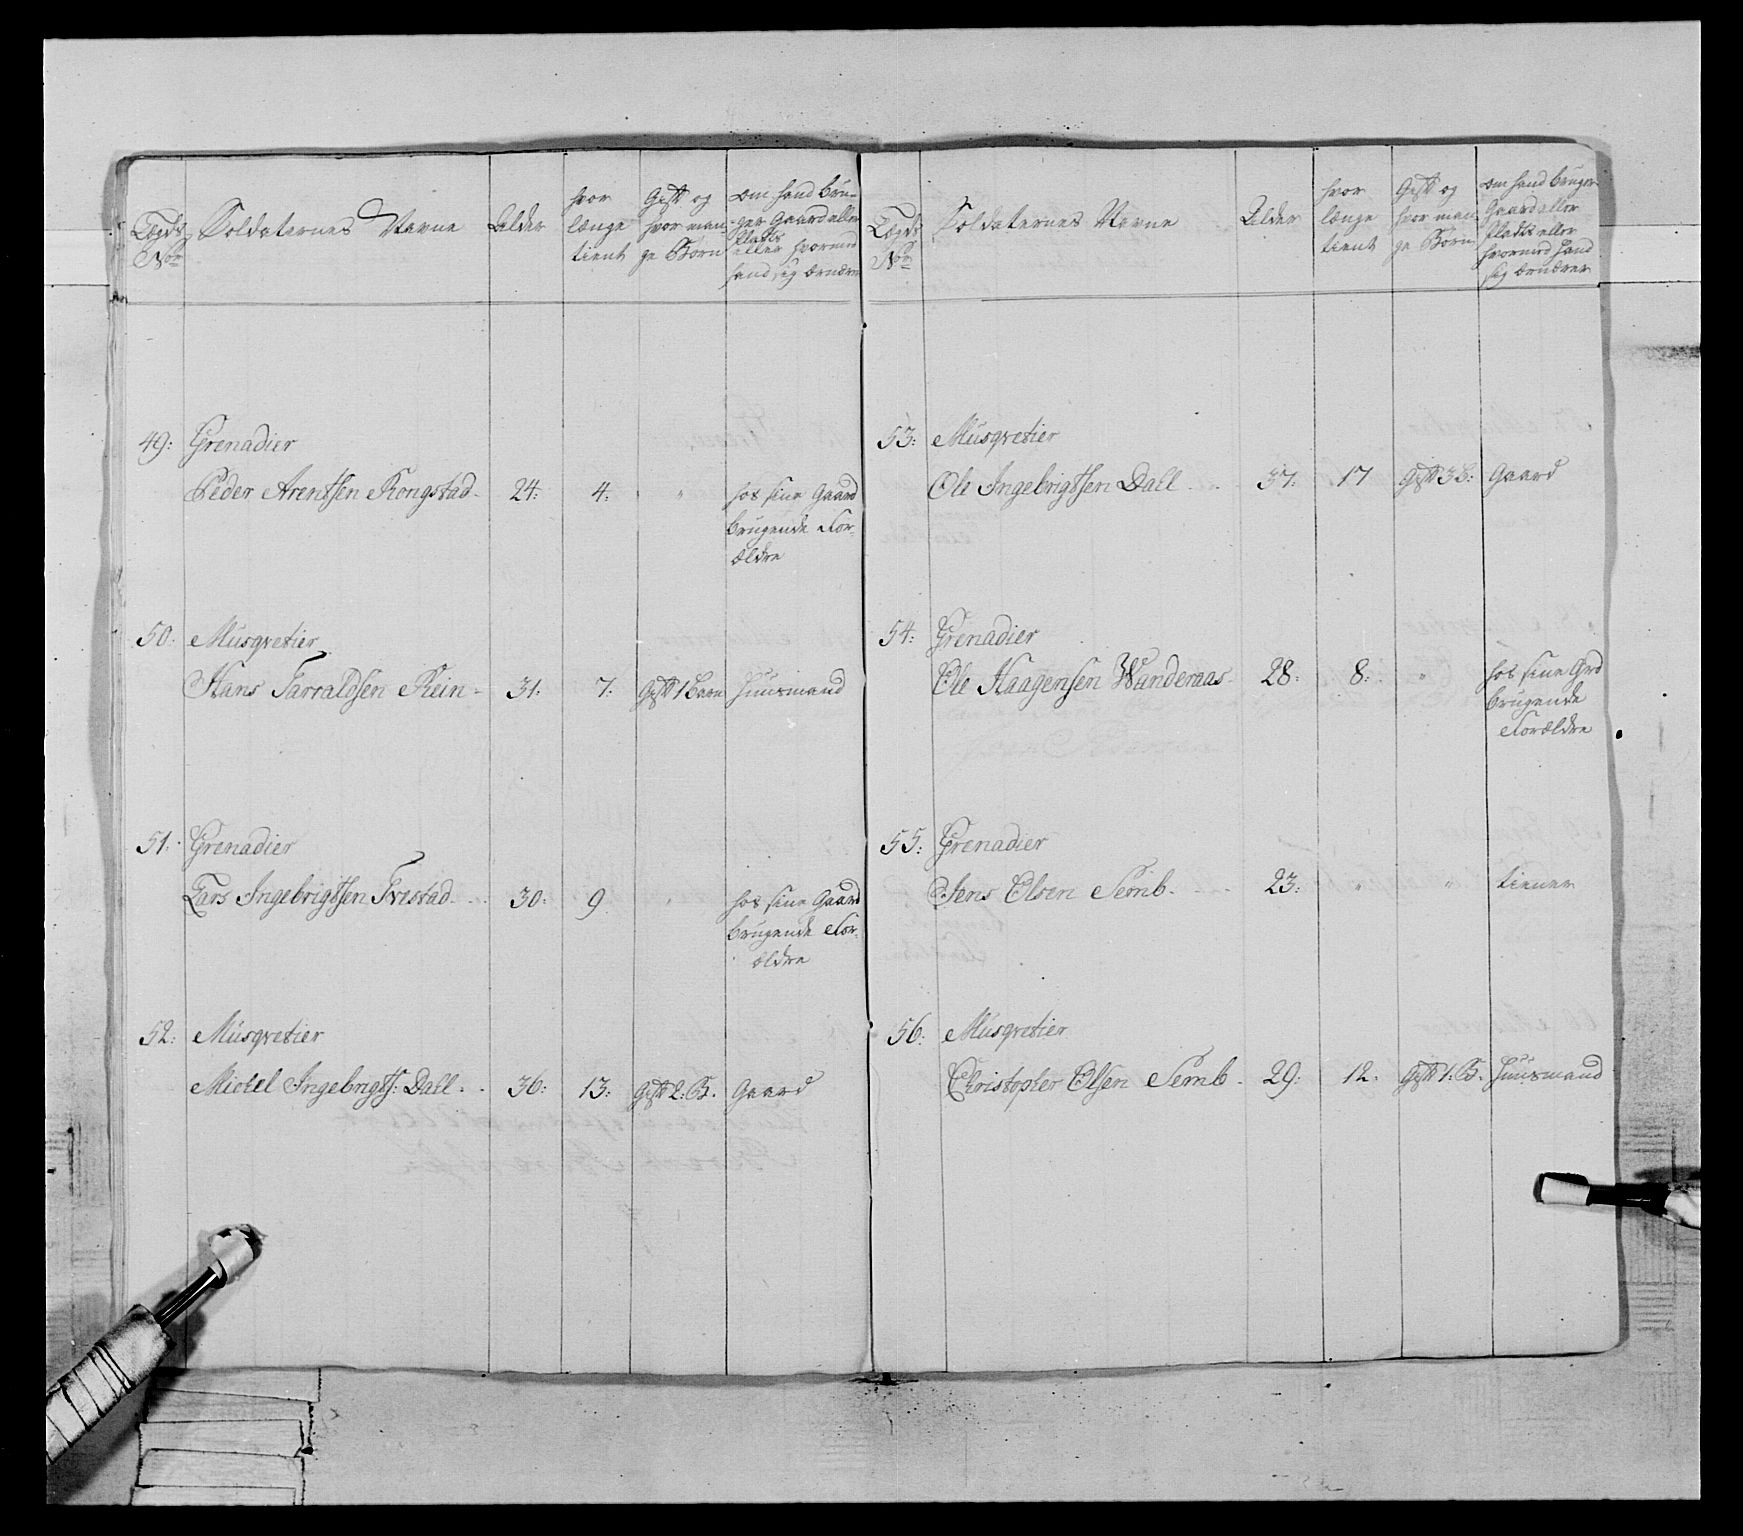 Lægds Nor
Soldaternes Navne
Alder
hvor længe tient
Gift og hvor mange Børn
om hand bruger Gaard eller Plads eller hvormed hand sig ernærer
49: Grenadier
Peder Arentsen Rongstad 24: 4: " hos sine Gaard
brugende For-
ældre
50: Musqvetier
Hans Tarraldsen Rein 31: 7: Gift 1 Barn Huusmand
51: Grenadier
Lars Ingebrigtsen Trestad 30: 9 hos sine Gaard
brugende For-
ældre
52: Musqvetier
Michel Ingebrigts: Dall 36: 13: Gift 2: B. Gaard
Lægds Nor
Soldaternes Navne
Alder
hvor længe tient
Gift og hvor mange Børn
om hand bruger Gaard eller Plads eller hvormed hand sig ernærer
53: Musqvetier
Ole Ingebrigtsen Dall 37: 17 Gift 3 B: Gaard
54: Grenadier
Ole Haagensen Wanderaas 28: 8: " hos sine Grd
brugende
Forældre
55: Grenadier
Jens Olsen Semb 23: " " tiener
56: Musqvetier
Christopher Olsen Semb 29: 12: Gift 1: B. Huusmand